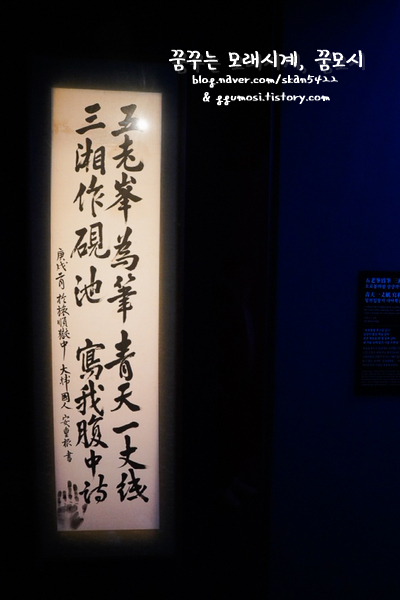 꿈꾸는 모래시계, 꿈모시
blog.naver.com/skan5422
& ggumosi.tistory.com
五老峯為筆 青天一丈紙
三湘作硯池 寫我腹中詩
庚戌二月 於旅順獄中 大韓國人 安重根 書